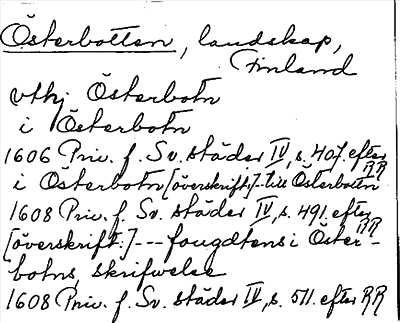 Österbotten, landskap,
Finland
vthj Österbotn
i Österbotn
1606 Priv. f. Sv. städer IV, s. 407. efter RR
i Österbotn [överskrift:] -- till Österbotn
1608 Priv. f. Sv. städer IV, s. 491. efter RR
[överskrift:] --- fougdtens i Öster-
botns skrifwelse
1608 Priv. f. Sv. städer IV, s. 511. efter RR